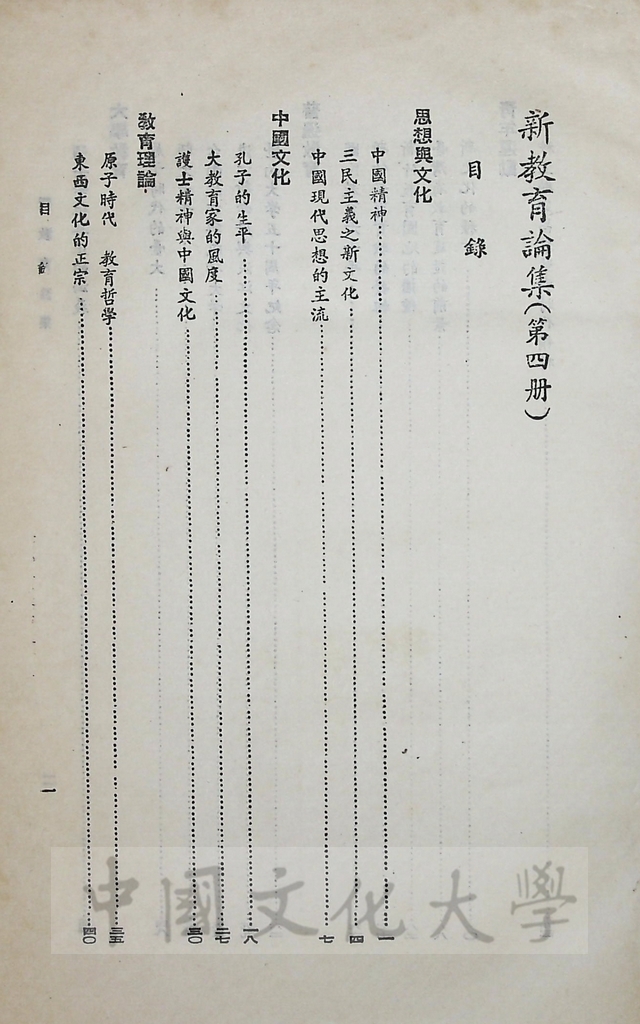 新教育論集（第四册）
目錄
思想與文化
中國精神……一
三民主義之新文化……四
中國現代思想的主流……七
中國文化
孔子的生平……一八
大教育家的風度……二七
護士精神與中國文化……三〇
教育理論
原子時代 教育哲學……三五
東西文化的正宗……四〇
目錄
一
中國文化大學